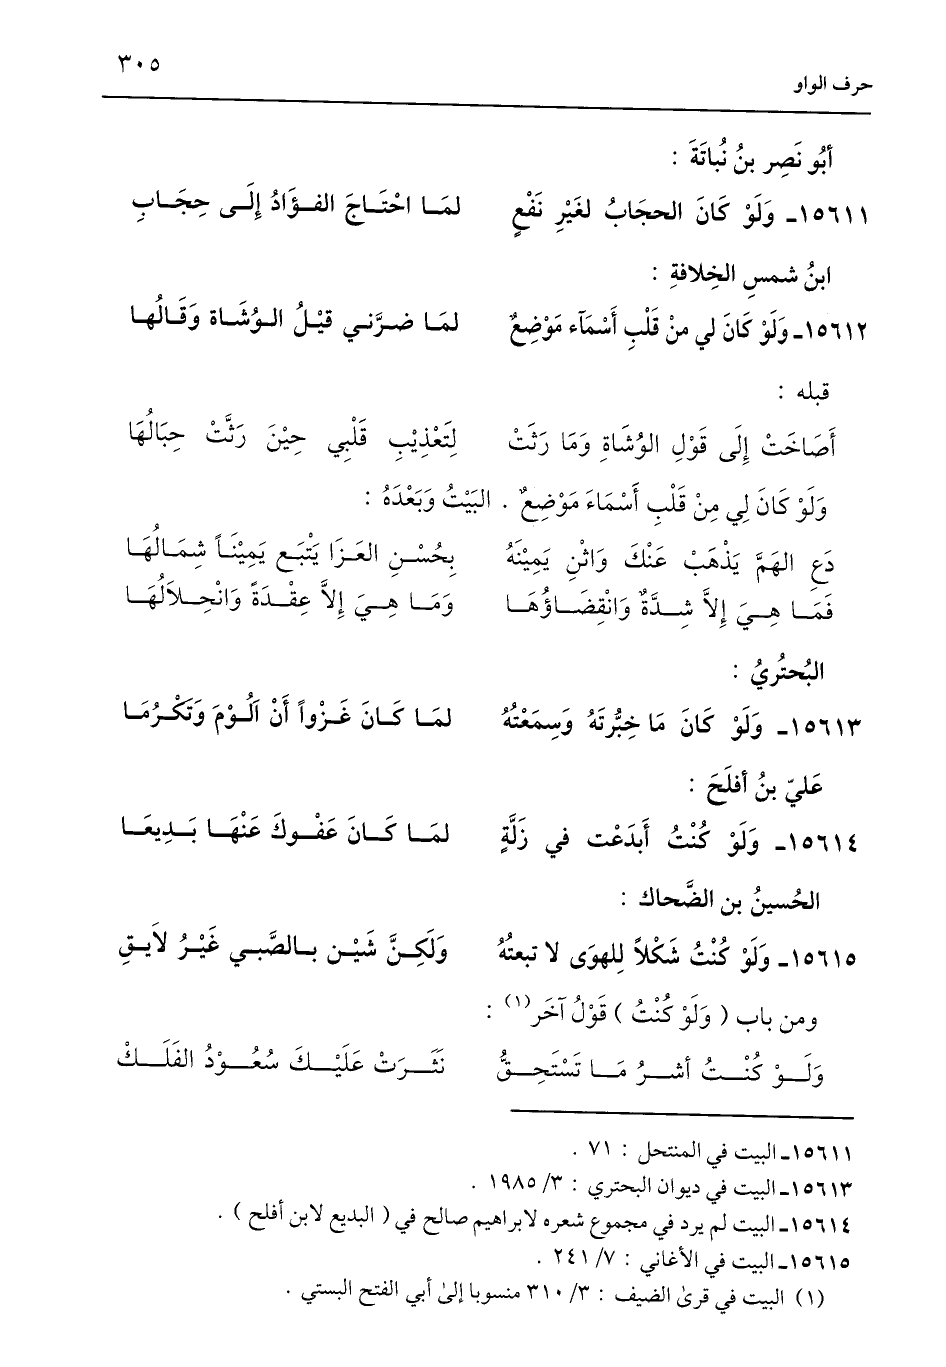 ٣٠٥
حرف الواو
أبُو نَصِر بنُ نُباتَةَ :
١٥٦١١ـ وَلَوْ كَانَ الحجَابُ لغَيْرِ نَفْعٍ لمَـا احْتَـاجَ الفـؤَادُ إلَـى حِجَـابِ
ابنُ شمسِ الخِلافةِ :
١٥٦١٢ـ وَلَوْ كَانَ لي منْ قَلْبِ أَسْمَآء مَوْضِعٌ لمَا ضرَّنـي قيْـلُ الـوُشَـاة وَقَـالُهـا
قبله :
أَصَاخَتْ إِلَى قَوْلِ الوُشَاةِ وَمَا رَثَتْ لِتَعْذِيْبِ قَلْبِي حِيْنَ رَثَّتْ حِبَالُهَا
وَلَوْ كَانَ لِي مِنْ قَلْبِ أَسْمَاءَ مَوْضِعٌ . البَيْتُ وَبَعْدَهُ :
دَعِ الهَمَّ يَذْهَبْ عَنْكَ وَاثْنِ يَمِيْنَهُ بِحُسْـنِ العَـزَا يَتْبَـع يَمِيْنَـاً شِمَـالُهَـا
فَمَـا هِـيَ إِلاَّ شِـدَّةٌ وَانْقِضَـاؤُهَـا وَمَـا هِـيَ إِلاَّ عِقْـدَةً وَانْحِـلاَلُهَـا
البُحتُريُ :
١٥٦١٣ـ وَلَوْ كَانَ مَا خبُّرتَهُ وَسِمَعْتُهُ لمَـا كَـانَ غَـزْواً أَنْ اَلُـوْمَ وَتَكْـرُمَـا
عَليّ بنُ أفلَحَ :
١٥٦١٤ـ وَلَوْ كُنْتُ أَبدَعْت في زَلَّةٍ لمَـا كَـانَ عَفْـوكَ عَنْهَـا بَـدِيعَـا
الحُسينُ بن الضَّحاك :
١٥٦١٥ـ وَلَوْ كُنْتُ شَكْلاً لِلهوَى لا تبعتُهُ وَلَكِـنَّ شَيْـن بـالصَّبـي غَيْـرُ لاَيـقِ
ومن باب ( وَلَوْ كُنْتُ ) قَوْلُ آخَر(١) :
وَلَـوْ كُنْـتُ أَنشـرُ مَـا تَسْتَحِـقُّ نَثَـرَتْ عَلَيْـكَ سُعُـوْدُ الفَلَـكْ
١٥٦١١ـ البيت في المنتحل : ٧١ .
١٥٦١٣ـ البيت في ديوان البحتري : ٣/ ١٩٨٥ .
١٥٦١٤ـ البيت لم يرد في مجموع شعره لابراهيم صالح في ( البديع لابن أفلح ) .
١٥٦١٥ـ البيت في الأغاني : ٧/ ٢٤١ .
(١) البيت في قرى الضيف : ٣/ ٣١٠ منسوبا إلى أبي الفتح البستي .